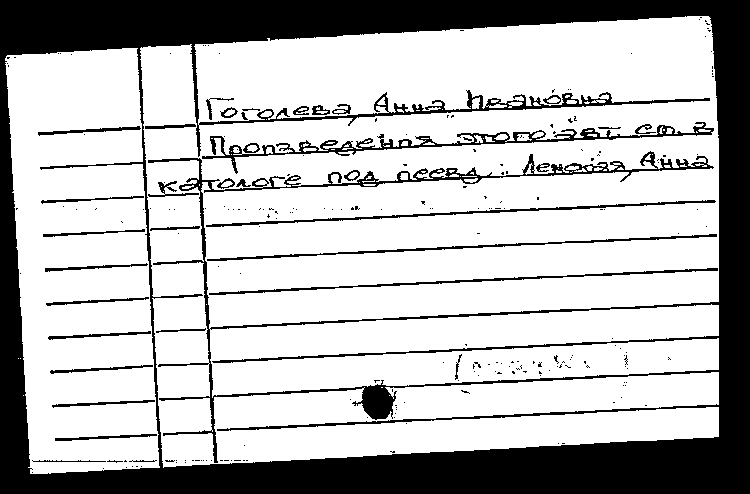 Гоголева, Анна Ивановна
Произведения этого авт. см. в
каталоге под псевд.: Ленская, Анна